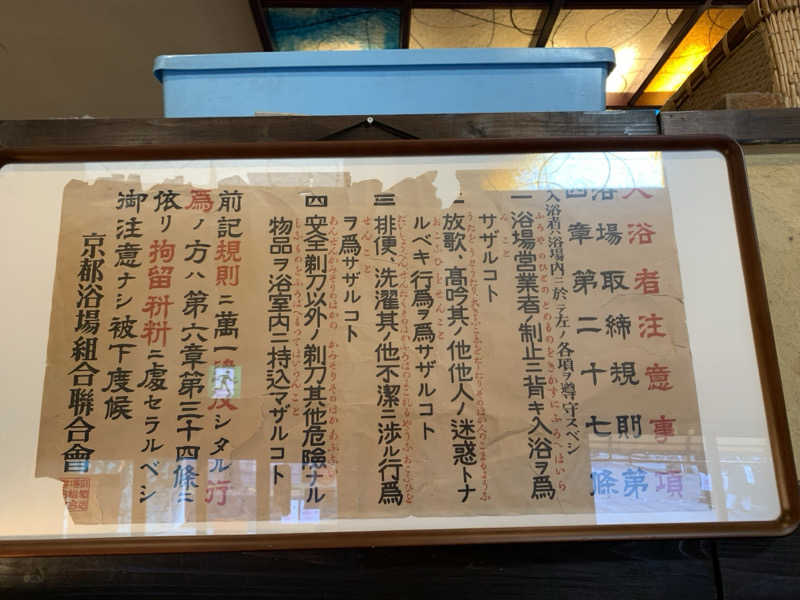 入浴者注意事項
浴場取締規則第
四章第二十七條
入浴者ハ浴場內ニ於テ左ノ各項ヲ遵守スベシ
一 浴場営業者ノ制止ニ背キ入浴ヲ爲
サザルコト
二 放歌、高吟其ノ他他人ノ迷惑トナ
ルベキ行爲ヲ爲サザルコト
三 排便、洗濯其ノ他不潔ニ渉ル行爲
ヲ爲サザルコト
四 安全剃刀以外ノ剃刀其他危險ナル
物品ヲ浴室内ニ持込マザルコト
前記規則ニ萬一違反シタル行
爲ノ方ハ第六章第三十四條ニ
依リ拘留科料ニ處セラルベシ
御注意ナシ被下度候
京都浴場組合聯合會